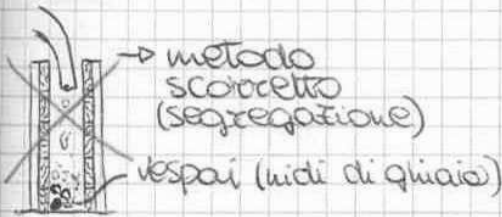 → metodo
scorretto
(segregazione)
vespai (nidi di ghiaia)